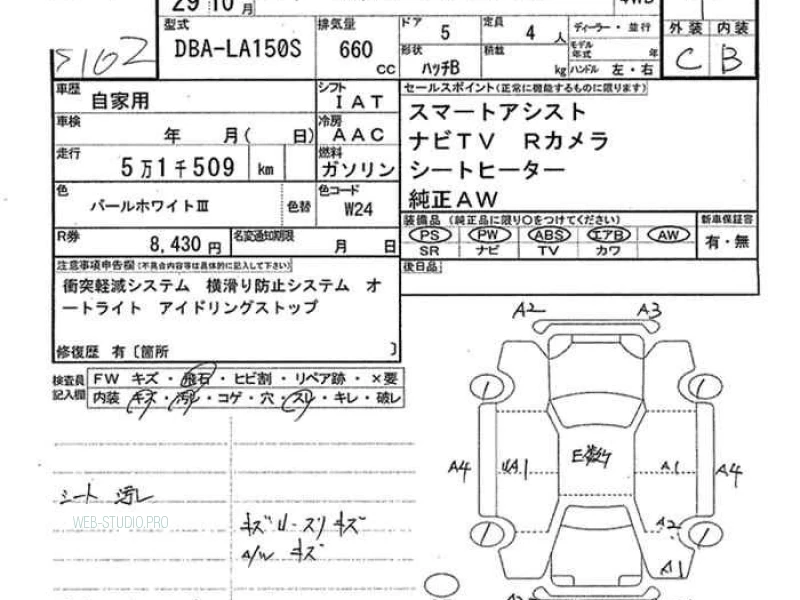 29 10 月 4WD
型式 排気量 ドア 5 定員 4 人 ディーラー・並行 外装 内装
DBA-LA150S 660 cc 形状 ハッチB 積載 kg モデル年式 年 C B
ハンドル 左・右
車歴 自家用 シフト IAT
車検 年 月( 日) 冷房 AAC
走行 5万1千509 km 燃料 ガソリン
色 パールホワイトⅢ 色替 色コード W24
R券 8,430円 名変通知期限 月 日
セールスポイント(正常に機能するものに限ります)
スマートアシスト
ナビTV Rカメラ
シートヒーター
純正AW
装備品 (純正品に限り○をつけてください) 新車保証書
PS PW ABS エアB AW 有・無
SR ナビ TV カワ
後日品
注意事項申告欄(不具合内容等は具体的に記入して下さい)
衝突軽減システム 横滑り防止システム オ
ートライト アイドリングストップ
修復歴 有〔箇所 〕
検査員記入欄 FW キズ・飛石・ヒビ割・リペア跡・×要
内装 キズ・汚レ・コゲ・穴・スレ・キレ・破レ
シート 汚レ
WEB-STUDIO.PRO
A/W キズ
A2 A3
A4 A1 A4
A2
A1